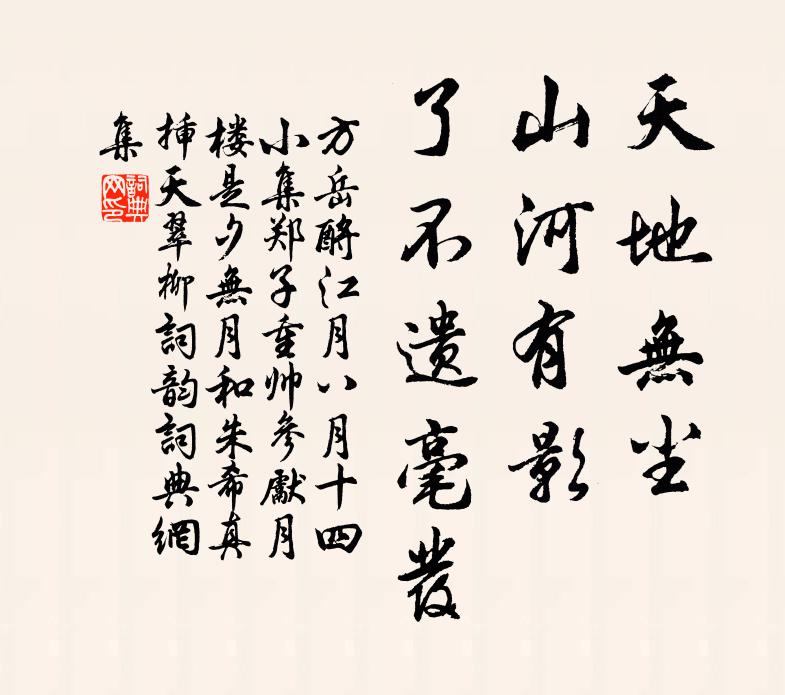 天地無尘
山河有影
了不遗毫發
方岳酹江月八月十四
小集郑子重帅参獻月
楼是夕無月和朱希真
插天翠柳詞韵詞典網
集
詞典網印